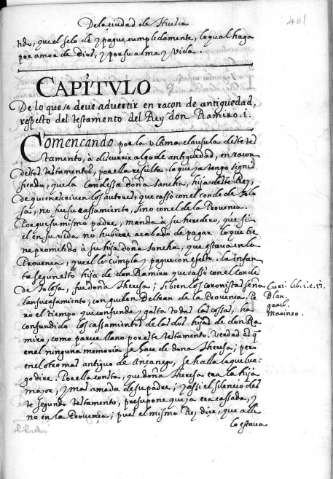 De la ciudad de Huesca
401
tidu, que el selo de y pague cumplidamente, lo qual haga
por amor de Dios, y por su alma y vida.
CAPITVLO
De lo que se deve advertir en racon de antiguedad,
respeto del testamento del Rey don Ramiro .1.
Comencando por la ultima clausula deste tes
tamento, a discurrir algo de antiguedad, en racon
deste testamento, por ella resulta lo que ya tengo signi
ficado, que la Condessa doña Sancha, hija deste Rey,
de quien escriven los autores, que cassó con el conde de Tolo
sa, no fue su cassamiento, sino con el de la Provenca.
Porque su mismo padre, manda a su heredero, que si
el en su vida no huviere acabado de pagar lo que tie
ne prometido a su hija doña Sancha, que estava en la
Provenca, que el lo cumpla y pague con efeto. La infan
ta segun esto hija de don Ramiro que cassó con el conde
de Tolosa, fue doña Theresa; si bien los coronistas señalan
su cassamiento, con Guillen Beltran de la Provenca. Pe
ro el tiempo que consunde, y gasta todas las cossas, ha
confundido los cassamientos de las dos hijas de don Ra
miro, como parece llano por este testamento. Verdad es que
en el ninguna memoria se hace de doña Theresa; pero
en el otro mas antiguo de Ançanego, se halla lo que lue
go dire. Por ella consta, que doña Theresa era la hija
mayor, y mas amada de su padre; y assi el silencio des
te segundo testamento, presupone que ya era cassada, y
no en la Provenca, pues el mismo Rey dice, que alli
lo estava
Blan
Marineo.